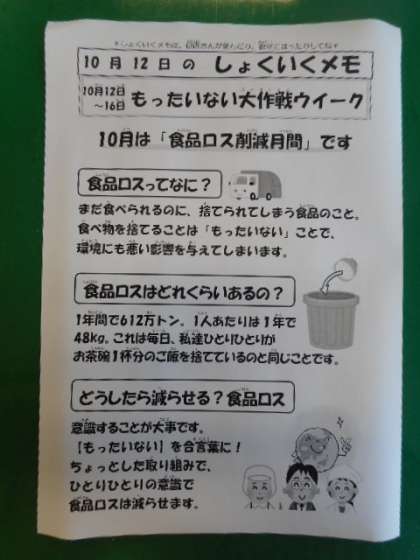 10月12日の しょくいくメモ
10月12日
～16日 もったいない大作戦ウイーク
10月は「食品ロス削減月間」です
食品ロスってなに？
まだ食べられるのに、捨てられてしまう食品のこと。
食べ物を捨てることは「もったいない」ことで、
環境にも悪い影響を与えてしまいます。
食品ロスはどれくらいあるの？
1年間で612万トン、1人あたりは1年で
48kg。これは毎日、私達ひとりひとりが
お茶碗1杯分のご飯を捨てているのと同じことです。
どうしたら減らせる？食品ロス
意識することが大事です。
【もったいない】を合言葉に！
ちょっとした取り組みで、
ひとりひとりの意識で
食品ロスは減らせます。